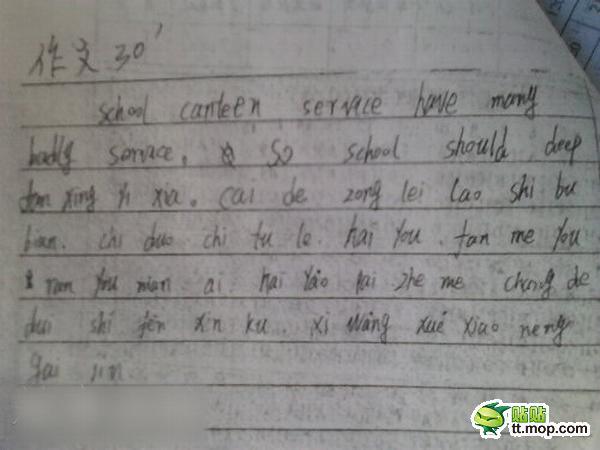 作文30'
school canteen service have many
badly service. so school should deep
fan xing yi xia. cai de zong lei lao shi bu
bian. chi duo chi tu le. hai you. fan me you
ran you nian ai hai yao pai zhe me chang de
dui shi fen xin ku. xi wang xue xiao neng
gai jin.
贴贴
tt.mop.com